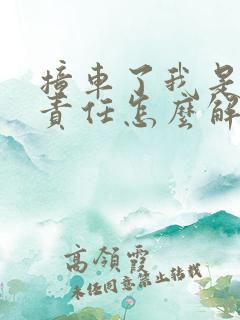 撞車了我是
責任怎麼解
高領霞
未任同意禁止轉載